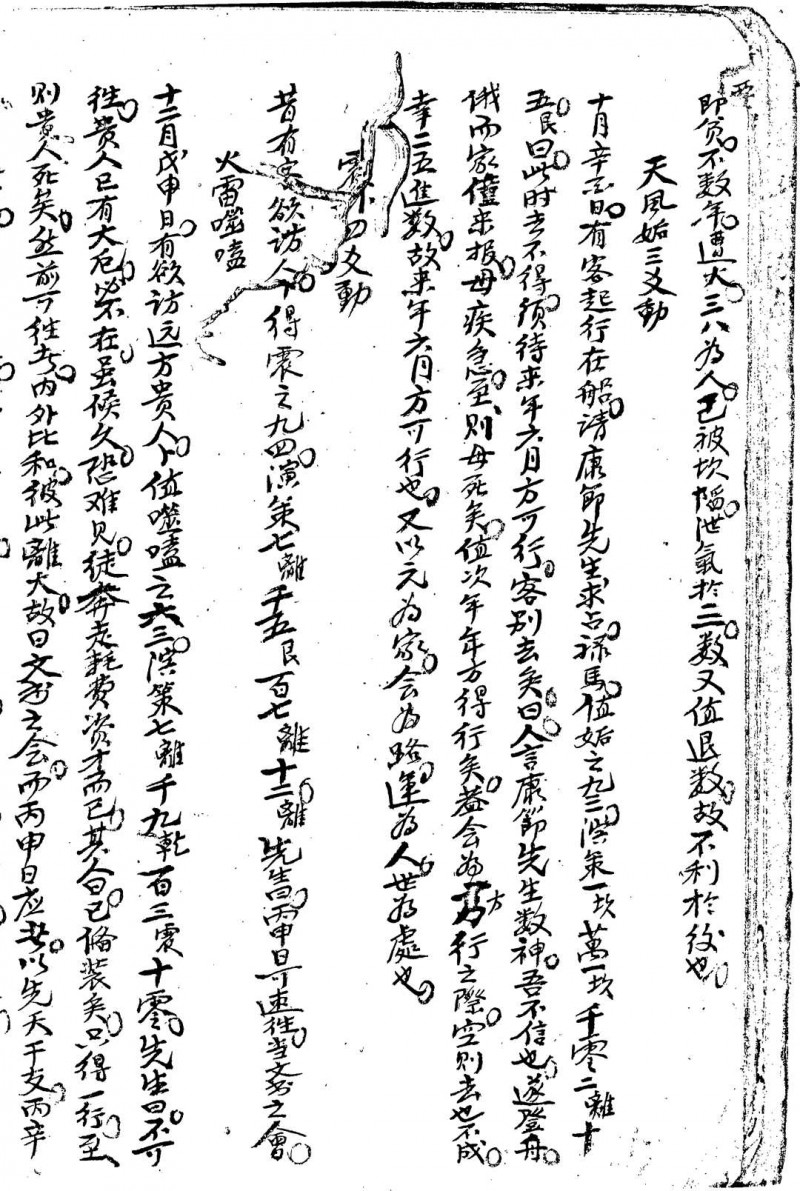 即貧不数年遭火三八為人已被坎陷泄氣於二数又值退数故不利於後也
天風姤三爻動
十月辛亥日有客起行在船請康節先生求占禄馬值姤之九三演策一坎萬一坎千零二離十
五艮曰此时去不得須待来年六月方可行客别去矣曰人言康節先生数神吾不信也遂登舟
俄而家僮来报母疾急至則母死矣值次年年方得行矣蓋会為方行之際空則去也不成
幸二五進数故来年六月方可行也又以元為家会為路運為人世為處也
震卜四爻動
昔有客欲访人卜得震之九四演策七離千五艮百七離十二離先生曰丙申日可速往当文书之會
火雷噬嗑
十二月戊申日有欲访远方贵人卜值噬嗑之六三演策七離千九乾百三震十零先生曰不可
往贵人已有大厄必不在虽候久恐难见徒奔走耗費资才而已其人曰已俻装矣只得一行至
则贵人死矣然前可往者内外比和彼此離火故曰文书之会而丙申日应者以先天干支丙辛